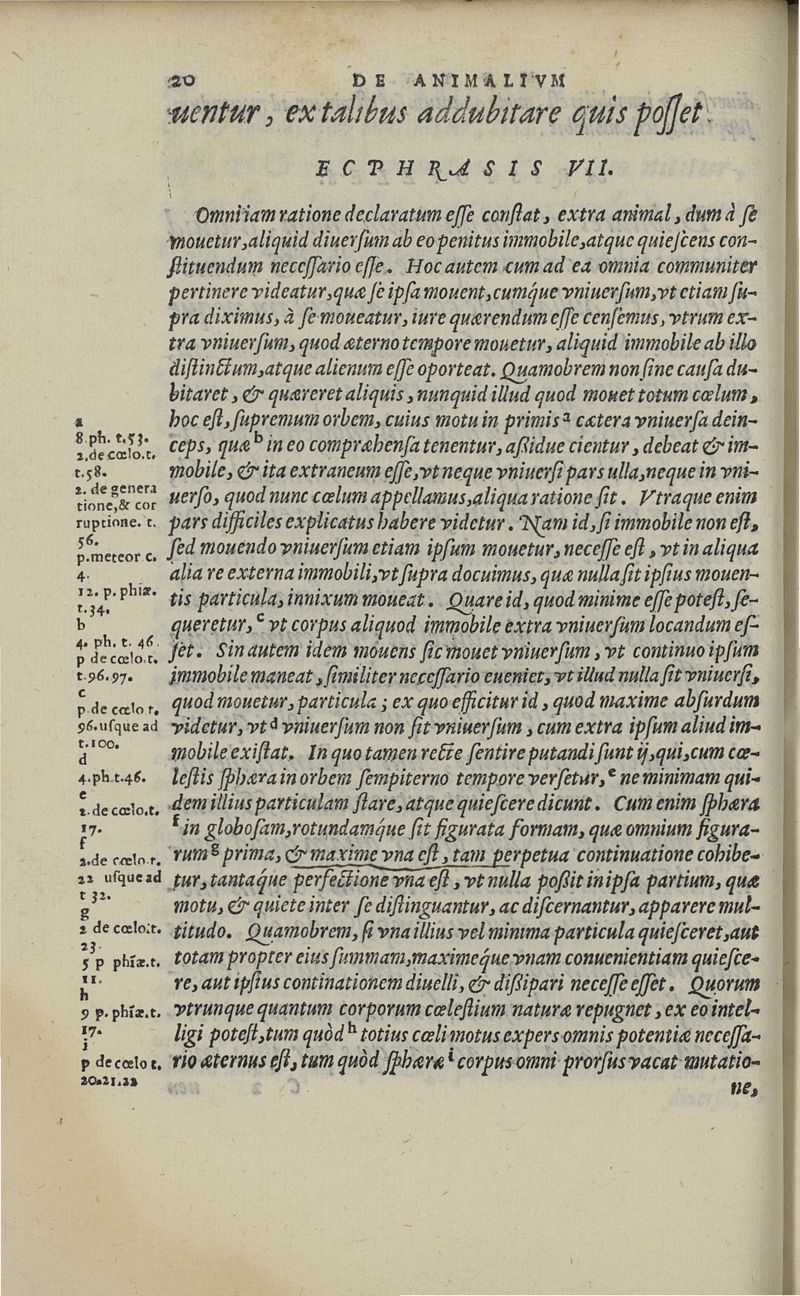 20 DE ANIMALIVM
uentur, ex talibus addubitare quis posset.
ECPHRASIS VII.
Omni iam ratione declaratum esse constat, extra animal, dum à se
mouetur, aliquid diuersum ab eo penitus immobile, atque quiescens con-
stituendum necessario esse. Hoc autem cum ad ea omnia communiter
pertinere videatur, quæ se ipsa mouent, cumq́ue vniuersum, vt etiam su-
pra diximus, à se moueatur, iure quærendum esse censemus, vtrum ex-
tra vniuersum, quod æterno tempore mouetur, aliquid immobile ab illo
distinctum, atque alienum esse oporteat. Quamobrem non sine causa du-
bitaret, & quæreret aliquis, nunquid illud quod mouet totum cœlum,
hoc est, supremum orbem, cuius motu in primis a cætera vniuersa dein-
ceps, quæ b in eo compræhensa tenentur, aßidue cientur, debeat & im-
mobile, & ita extraneum esse, vt neque vniuersi pars ulla, neque in vni-
uerso, quod nunc cœlum appellamus, aliqua ratione sit. Vtraque enim
pars difficiles explicatus habere videtur. Nam id, si immobile non est,
sed mouendo vniuersum etiam ipsum mouetur, necesse est, vt in aliqua
alia re externa immobili, vt supra docuimus, quæ nulla sit ipsius mouen-
tis particula, innixum moueat. Quare id, quod minime esse potest, se-
queretur, c vt corpus aliquod immobile extra vniuersum locandum es-
set. Sin autem idem mouens sic mouet vniuersum, vt continuo ipsum
immobile maneat, similiter necessario eueniet, vt illud nulla sit vniuersi,
quod mouetur, particula; ex quo efficitur id, quod maxime absurdum
videtur, vt d vniuersum non sit vniuersum, cum extra ipsum aliud im-
mobile existat. In quo tamen recte sentire putandi sunt ij, qui, cum cœ-
lestis sphæra in orbem sempiterno tempore versetur, e ne minimam qui-
dem illius particulam stare, atque quiescere dicunt. Cum enim sphæra
f in globosam, rotundamq́ue sit figurata formam, quæ omnium figura-
rum g prima, & maxime vna est, tam perpetua continuatione cohibe-
tur, tantaq́ue perfectione vna est, vt nulla poßit in ipsa partium, quæ
motu, & quiete inter se distinguantur, ac discernantur, apparere mul-
titudo. Quamobrem, si vna illius vel minima particula quiesceret, aut
totam propter eius summam, maximeq́ue vnam conuenientiam quiesce-
re, aut ipsius continationem diuelli, & dißipari necesse esset. Quorum
vtrunque quantum corporum cœlestium naturæ repugnet, ex eo intel-
ligi potest, tum quòd h totius cœli motus expers omnis potentiæ necessa-
rio æternus est, tum quòd sphæræ i corpus omni prorsus vacat mutatio-
ne,
a
8. ph. t. 53.
2. de cœlo. t.
t. 58.
2. de genera
tione, & cor
ruptione. t.
56.
p. meteor c.
4.
12. p. phiæ.
t. 34.
b
4. ph. t. 46.
p de cœlo. t.
t. 96. 97.
c
p. de cœlo t.
96. usque ad
t. 100.
d
4. ph t. 46.
e
2. de cœlo. t.
17.
f
2. de cœlo. t.
22 usque ad
t 32.
g
2 de cœlo. t.
23.
5 p phiæ. t.
11.
h
9 p. phiæ. t.
17.
i
p de cœlo t.
20. 21. 22